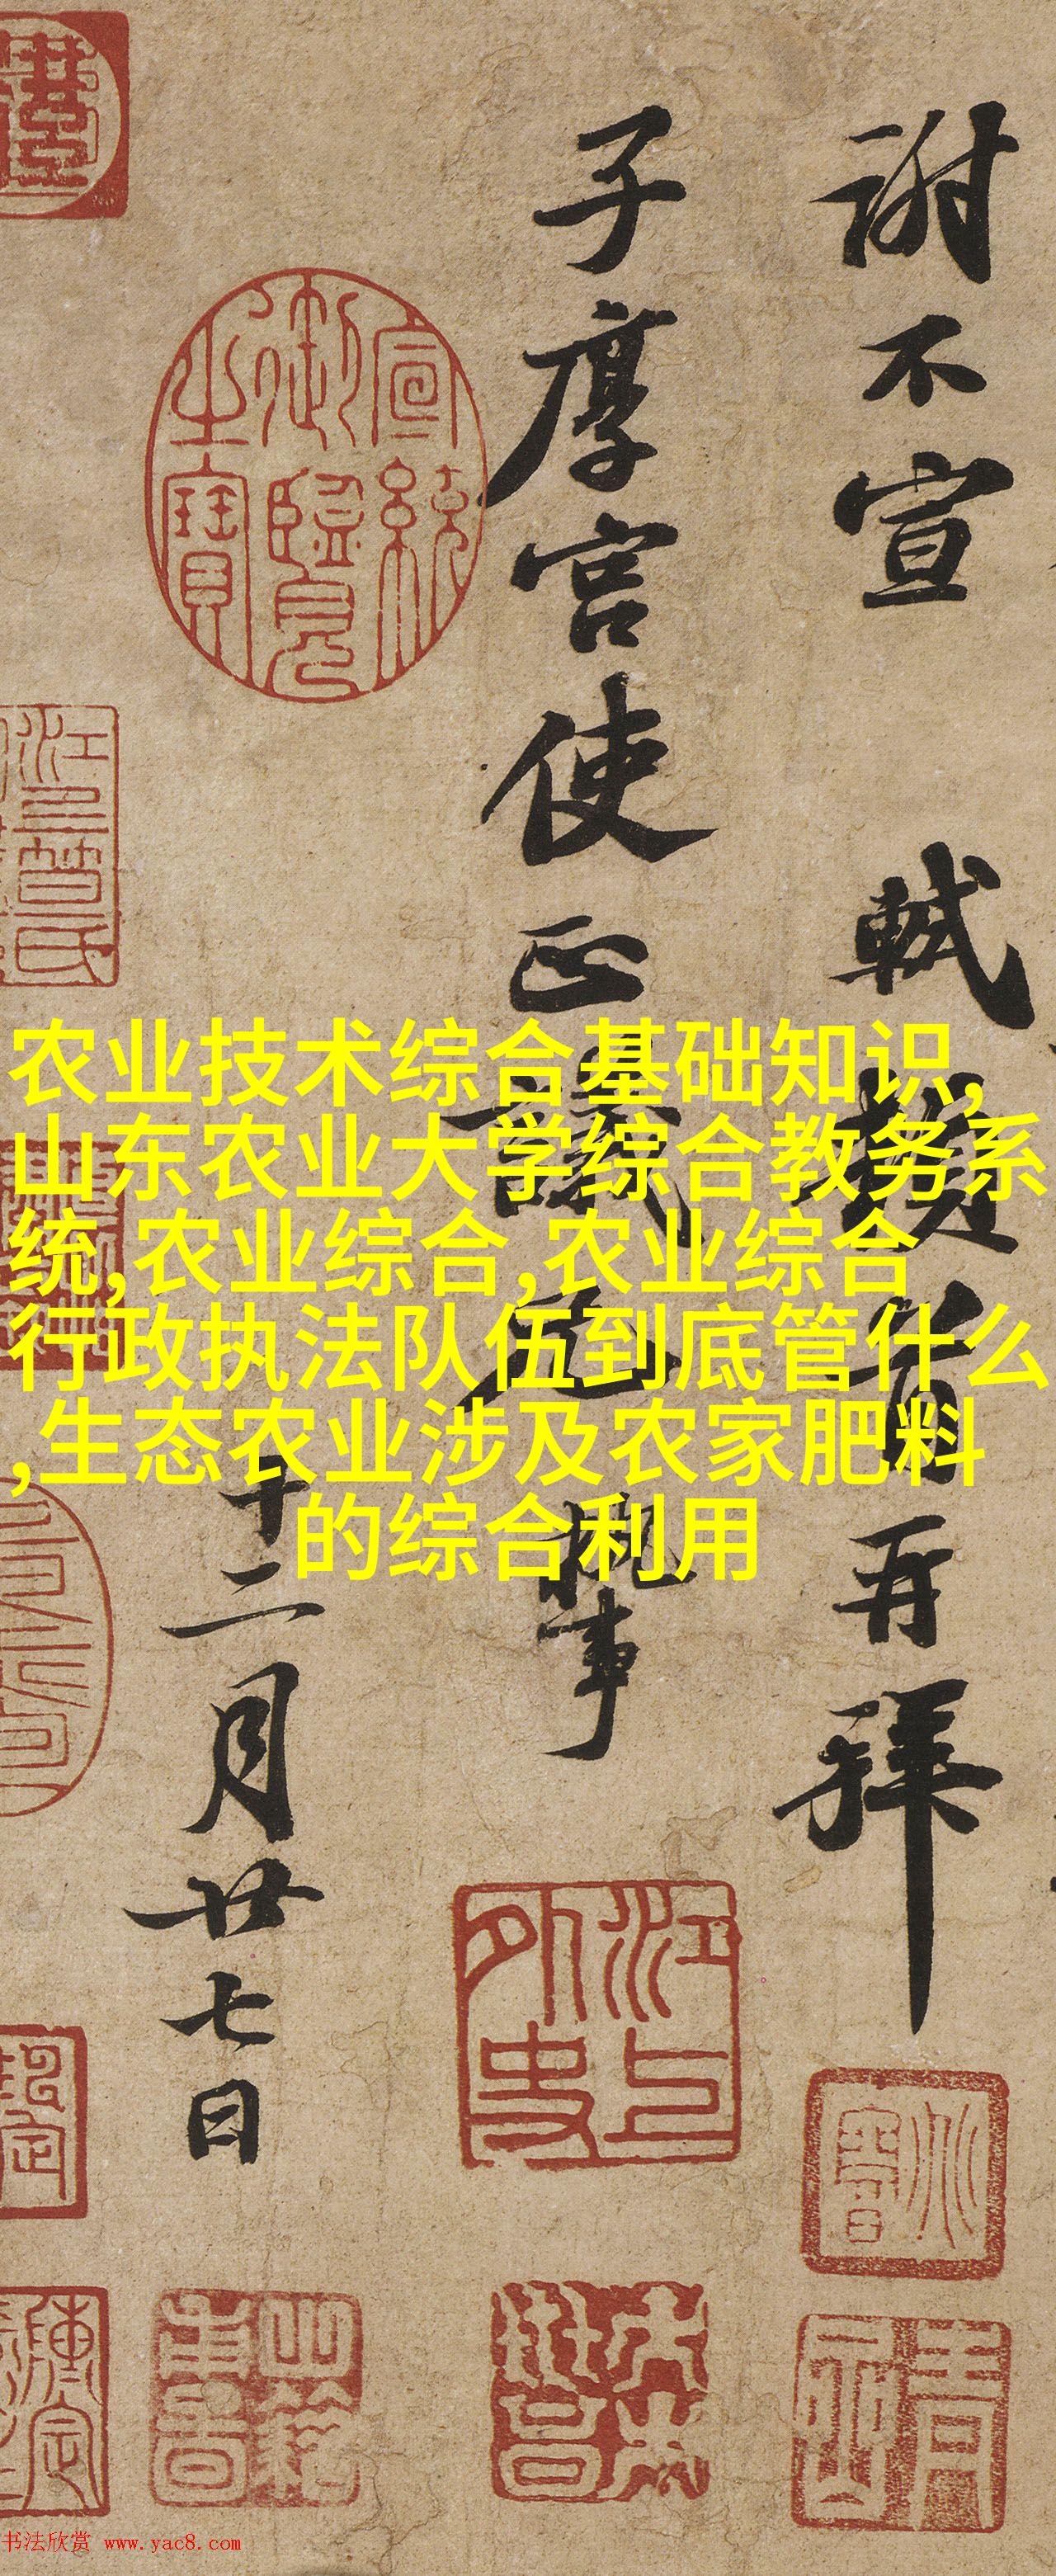 謝不宣 軾頓首再拜
子厚宮使正議兄執事
十二月廿七日
宣統御覽之寶
农业技术综合基础知识,
山东农业大学综合教务系
统,农业综合,农业综合
行政执法队伍到底管什么
,生态农业涉及农家肥料
的综合利用
江上
外史
书法欣赏 www.yac8.com